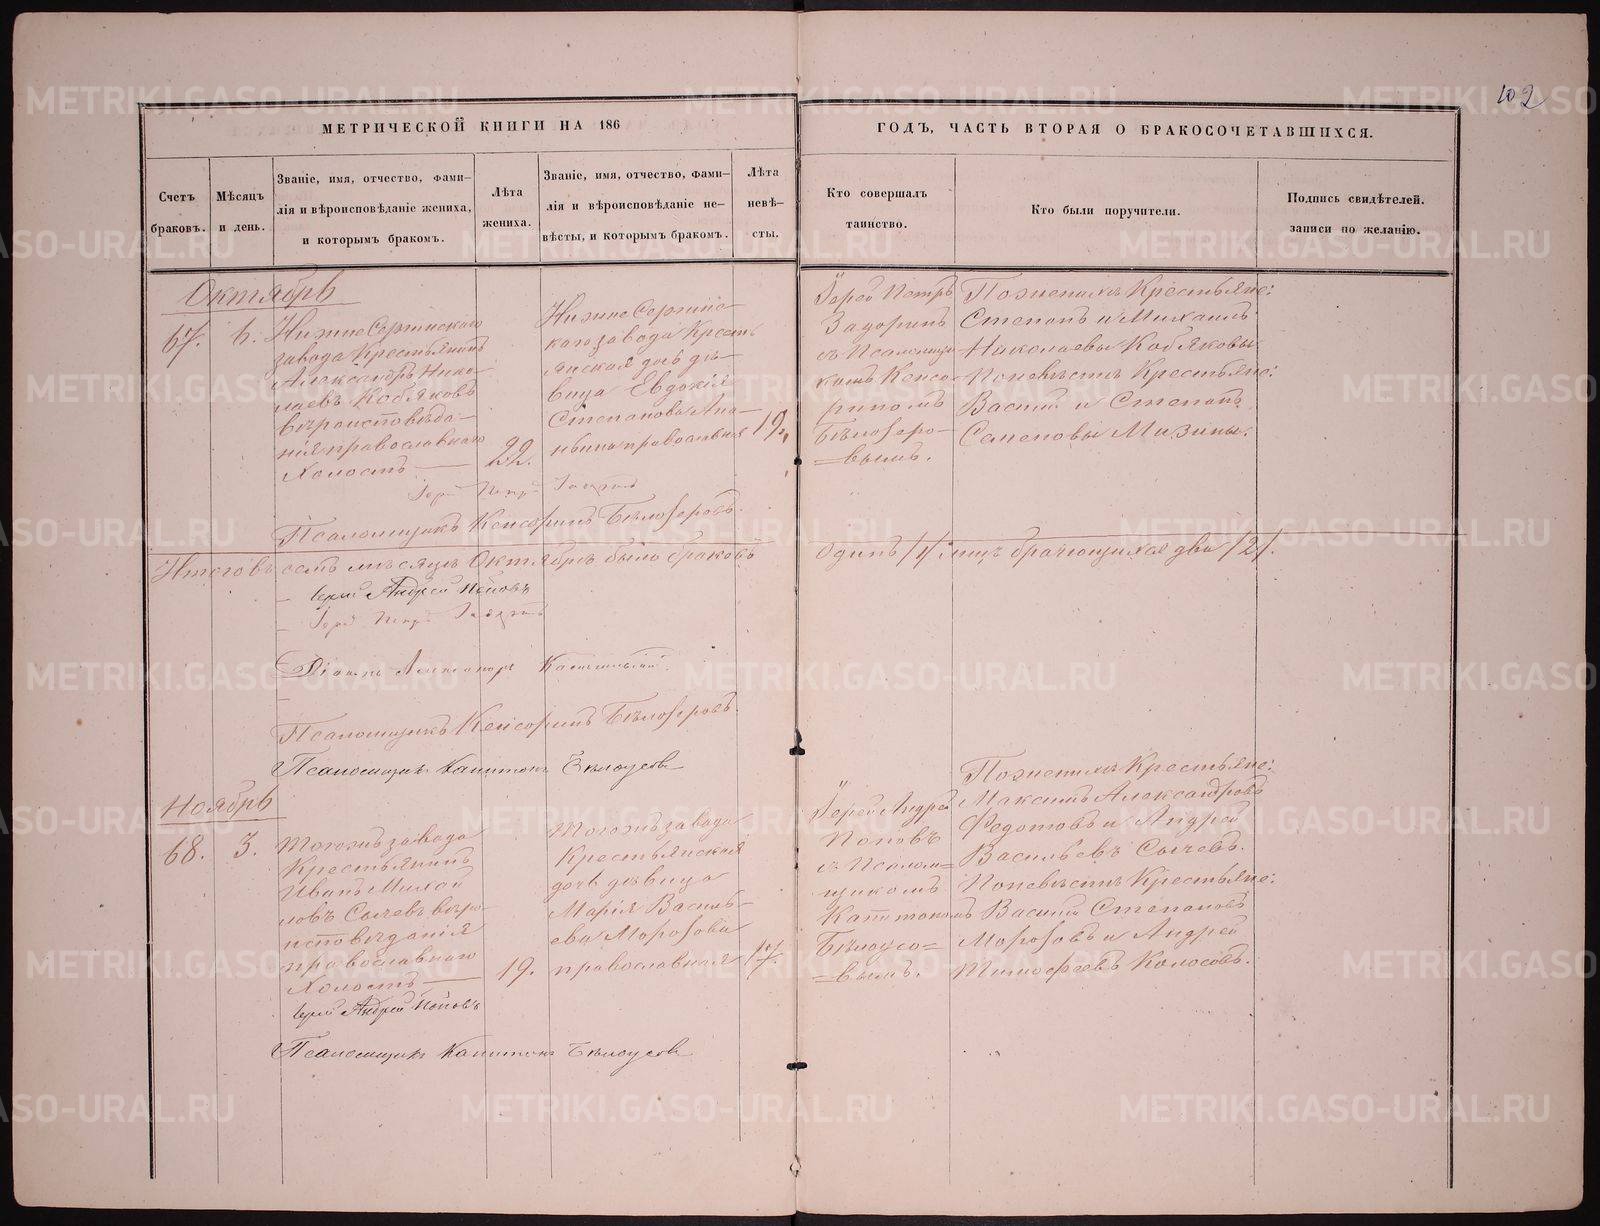 102
МЕТРИЧЕСКОЙ КНИГИ НА 186
ГОДЪ, ЧАСТЬ ВТОРАЯ О БРАКОСОЧЕТАВШИХСЯ.
Счетъ
браковъ.
Мѣсяцъ
и день.
Званіе, имя, отчество, фами-
лія и вѣроисповѣданіе жениха,
и которымъ бракомъ.
Лѣта
жениха.
Званіе, имя, отчество, фами-
лія и вѣроисповѣданіе не-
вѣсты, и которымъ бракомъ.
Лѣта
невѣ-
сты.
Кто совершалъ
таинство.
Кто были поручители.
Подпись свидѣтелей.
записи по желанію.
Октябрь
67.
6.
Нижне Сергинскаго
завода Крестьянинъ
Александръ Нико-
лаевъ Кобяковъ
вѣроисповѣда-
нія православнаго
Холостъ
22.
Нижне Сергинс-
каго завода Кресть-
янская дочь дѣ-
вица Евдокія
Степанова
православная
19.
Іерей Петръ
Задоринъ
съ Псаломщи-
комъ Кенсо-
риномъ
Бѣлозеро-
=вымъ.
Пожениху Крестьяне:
Степанъ и Михаилъ
Николаевы Кобяковы
Поневѣстѣ Крестьяне:
Василій и Степанъ
Семеновы Мизины.
Іерей Петръ Задоринъ
Псаломщикъ Кенсоринъ Бѣлозеровъ.
Итого въ семъ мѣсяцѣ Октябрѣ было браковъ
одинъ /1/ лицъ брачующихся два /2/.
Іерей Андрей Поповъ
Іерей Петръ Задоринъ
Діаконъ Александръ
Псаломщикъ Кенсоринъ Бѣлозеровъ.
Псаломщикъ Капитонъ Бѣлоусовъ
Ноябрь
68.
3.
Тогожъ завода
Крестьянинъ
Иванъ Михай
ловъ Сычевъ вѣро-
исповѣданія
православнаго
Холостъ
19.
Тогожъ завода
Крестьянская
дочь дѣвица
Марія Василь-
ева Морозова
православная
17.
Іерей Андрей
Поповъ
съ Псалом=
щикомъ
Капитономъ
Бѣлоусо=
=вымъ.
Пожениху Крестьяне:
Максимъ Александровъ
Федотовъ и Андрей
Васильевъ Сычевъ.
Поневѣстѣ Крестьяне:
Василій Степановъ
Морозовъ и Андрей
Тимофеевъ Колосовъ.
Іерей Андрей Поповъ
Псаломщикъ Капитонъ Бѣлоусовъ
METRIKI.GASO-URAL.RU